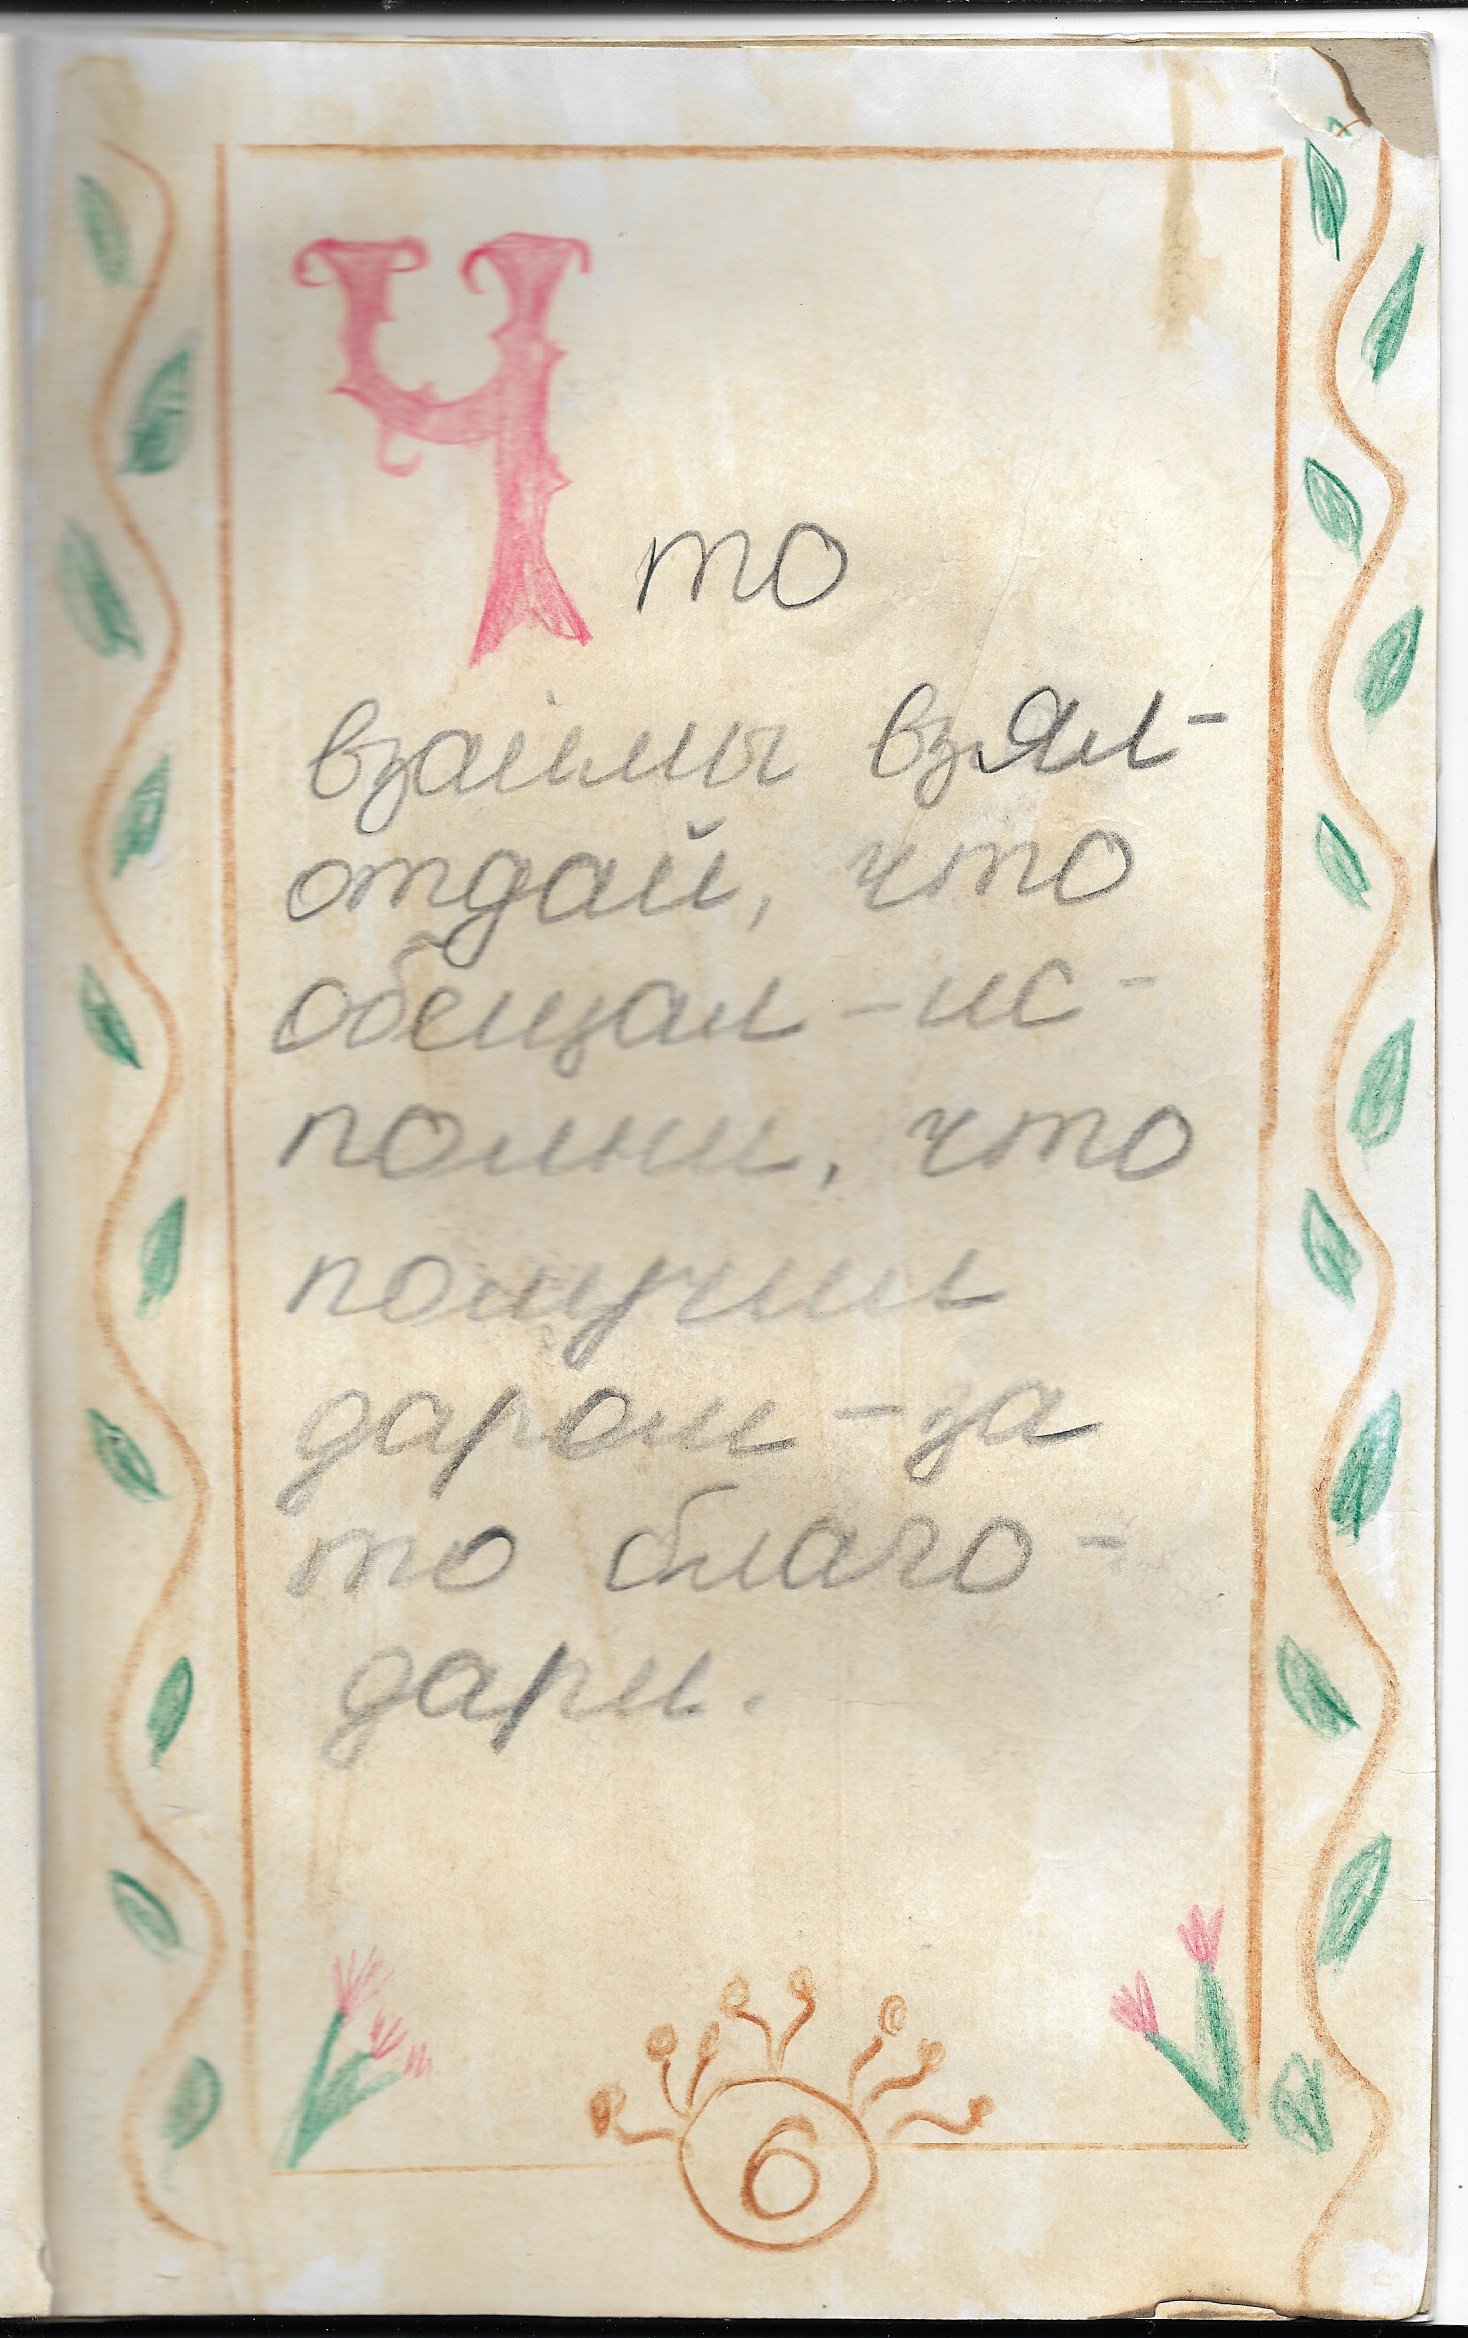 Что
взаимы взял-
отдай, что
обещал - ис-
полни, что
получил
даром - за
то благо-
дари.
6